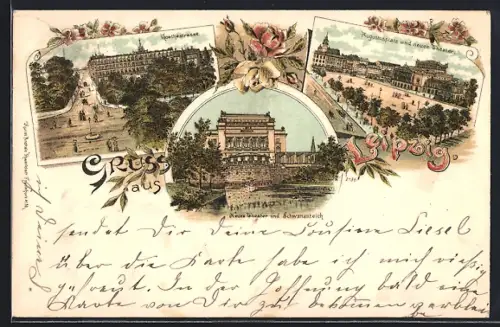 Goethestrasse
Augustusplatz und neues Theater
Gruss
aus
Leipzig.
Neues Theater und Schwanenteich
sendet Dir Deine Cousine Liesel
über die Karte habe ich mich riesig
gefreut. In der Hoffnung bald eine
Karte von Dir zu bekommen